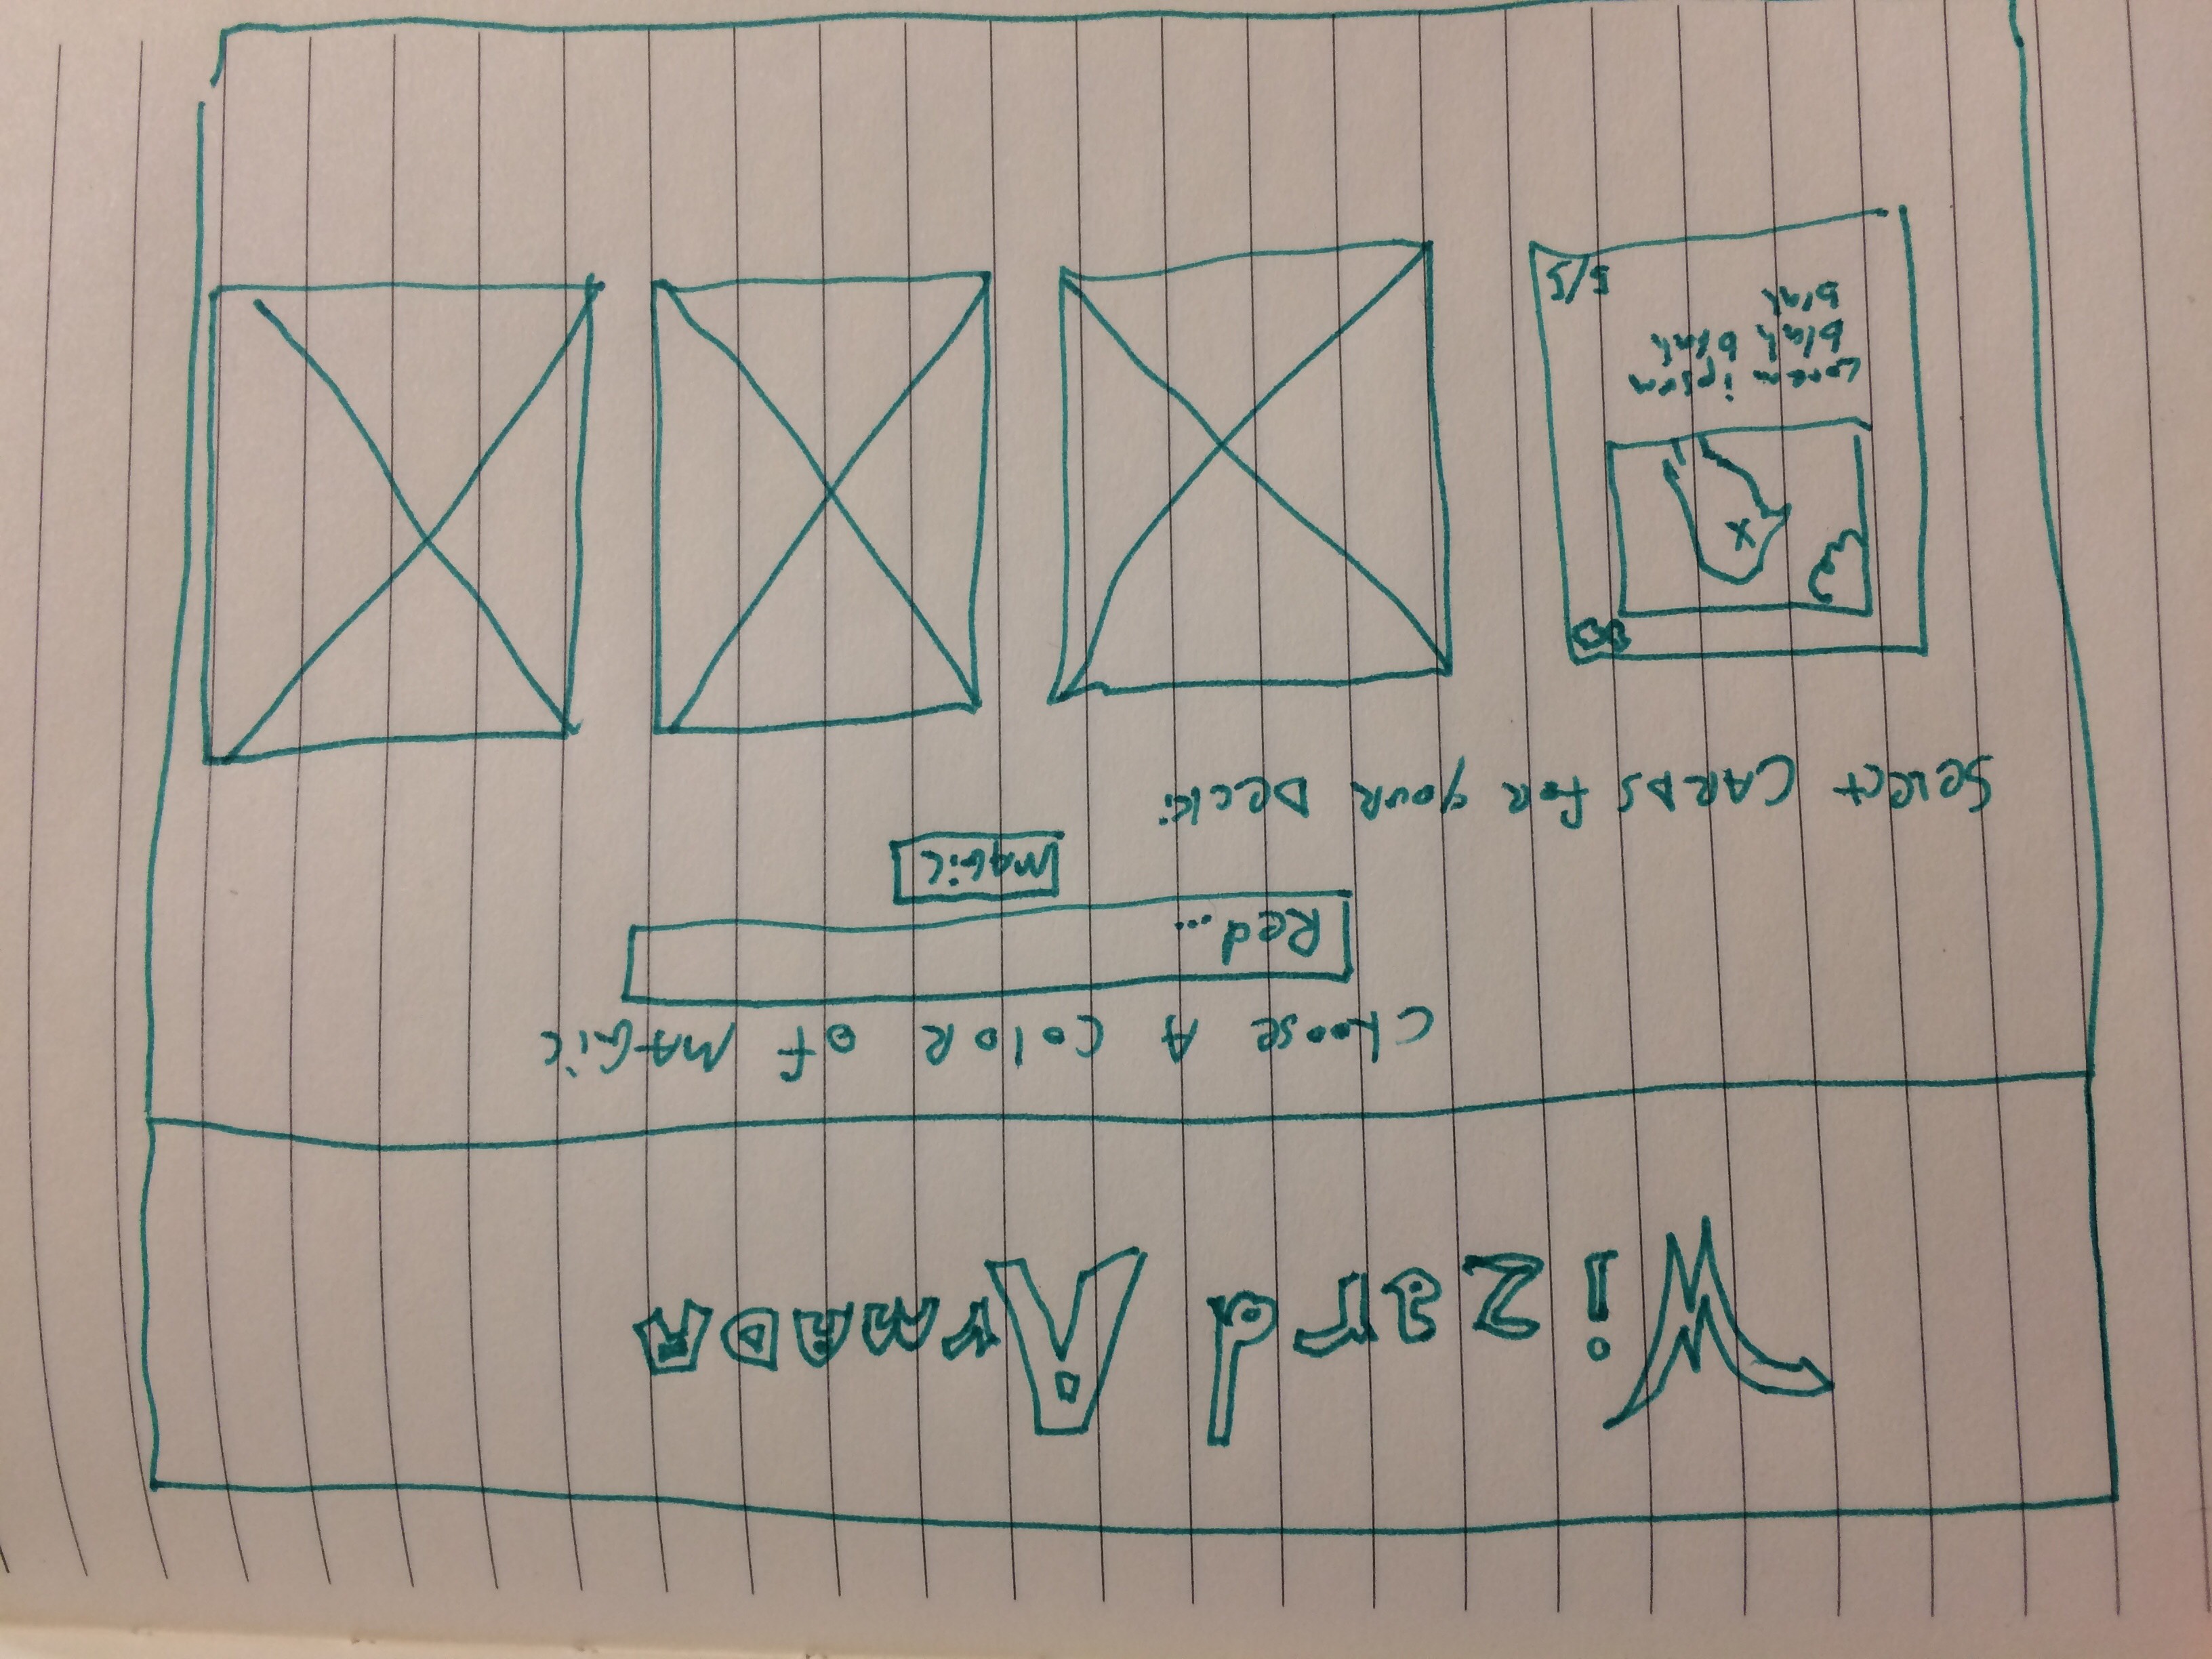 Wizard Armada
Choose A Color of MAGic
Red...
MAGic
Select CARDS for your Deck:
Lorem ipsum
blah blah
blah
5/5